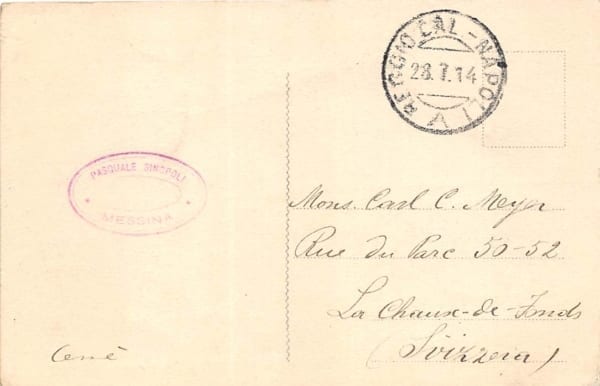 REGGIO CAL-NAPOLI V
28.7.14
PASQUALE SINOPOLI
MESSINA
Mons. Carl C. Meyer
Rue du Parc 50-52
La Chaux-de-Fonds
(Svizzera)